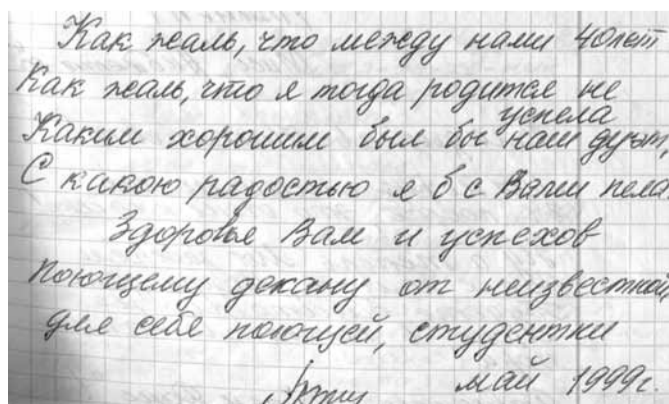 Как жаль, что между нами 40 лет
Как жаль, что я тогда родится не
успела
Каким хорошим был бы наш дуэт,
С какою радостью я б с Вами пела
Здоровья Вам и успехов
Поющему декану от неизвестной
для себе поющей, студентки
май 1999г.